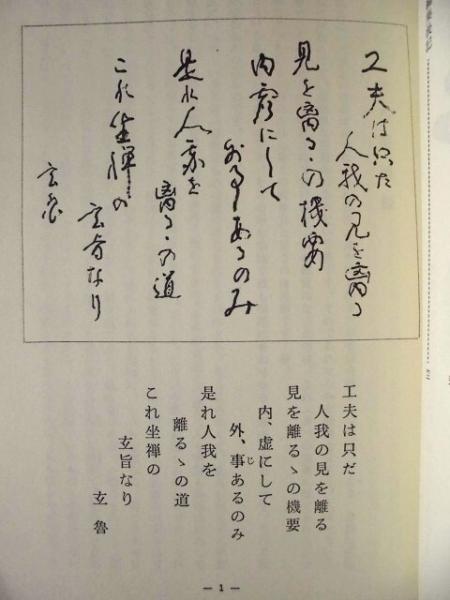 工夫は只た
人我の見を離る
見を離るゝの機要
内虚にして
外事あるのみ
是れ人我を
離るゝの道
これ坐禅の
玄旨なり
玄魯
工夫は只だ
人我の見を離る
見を離るゝの機要
内、虚にして
外、事あるのみ
じ
是れ人我を
離るゝの道
これ坐禅の
玄旨なり
玄魯
— 1 —